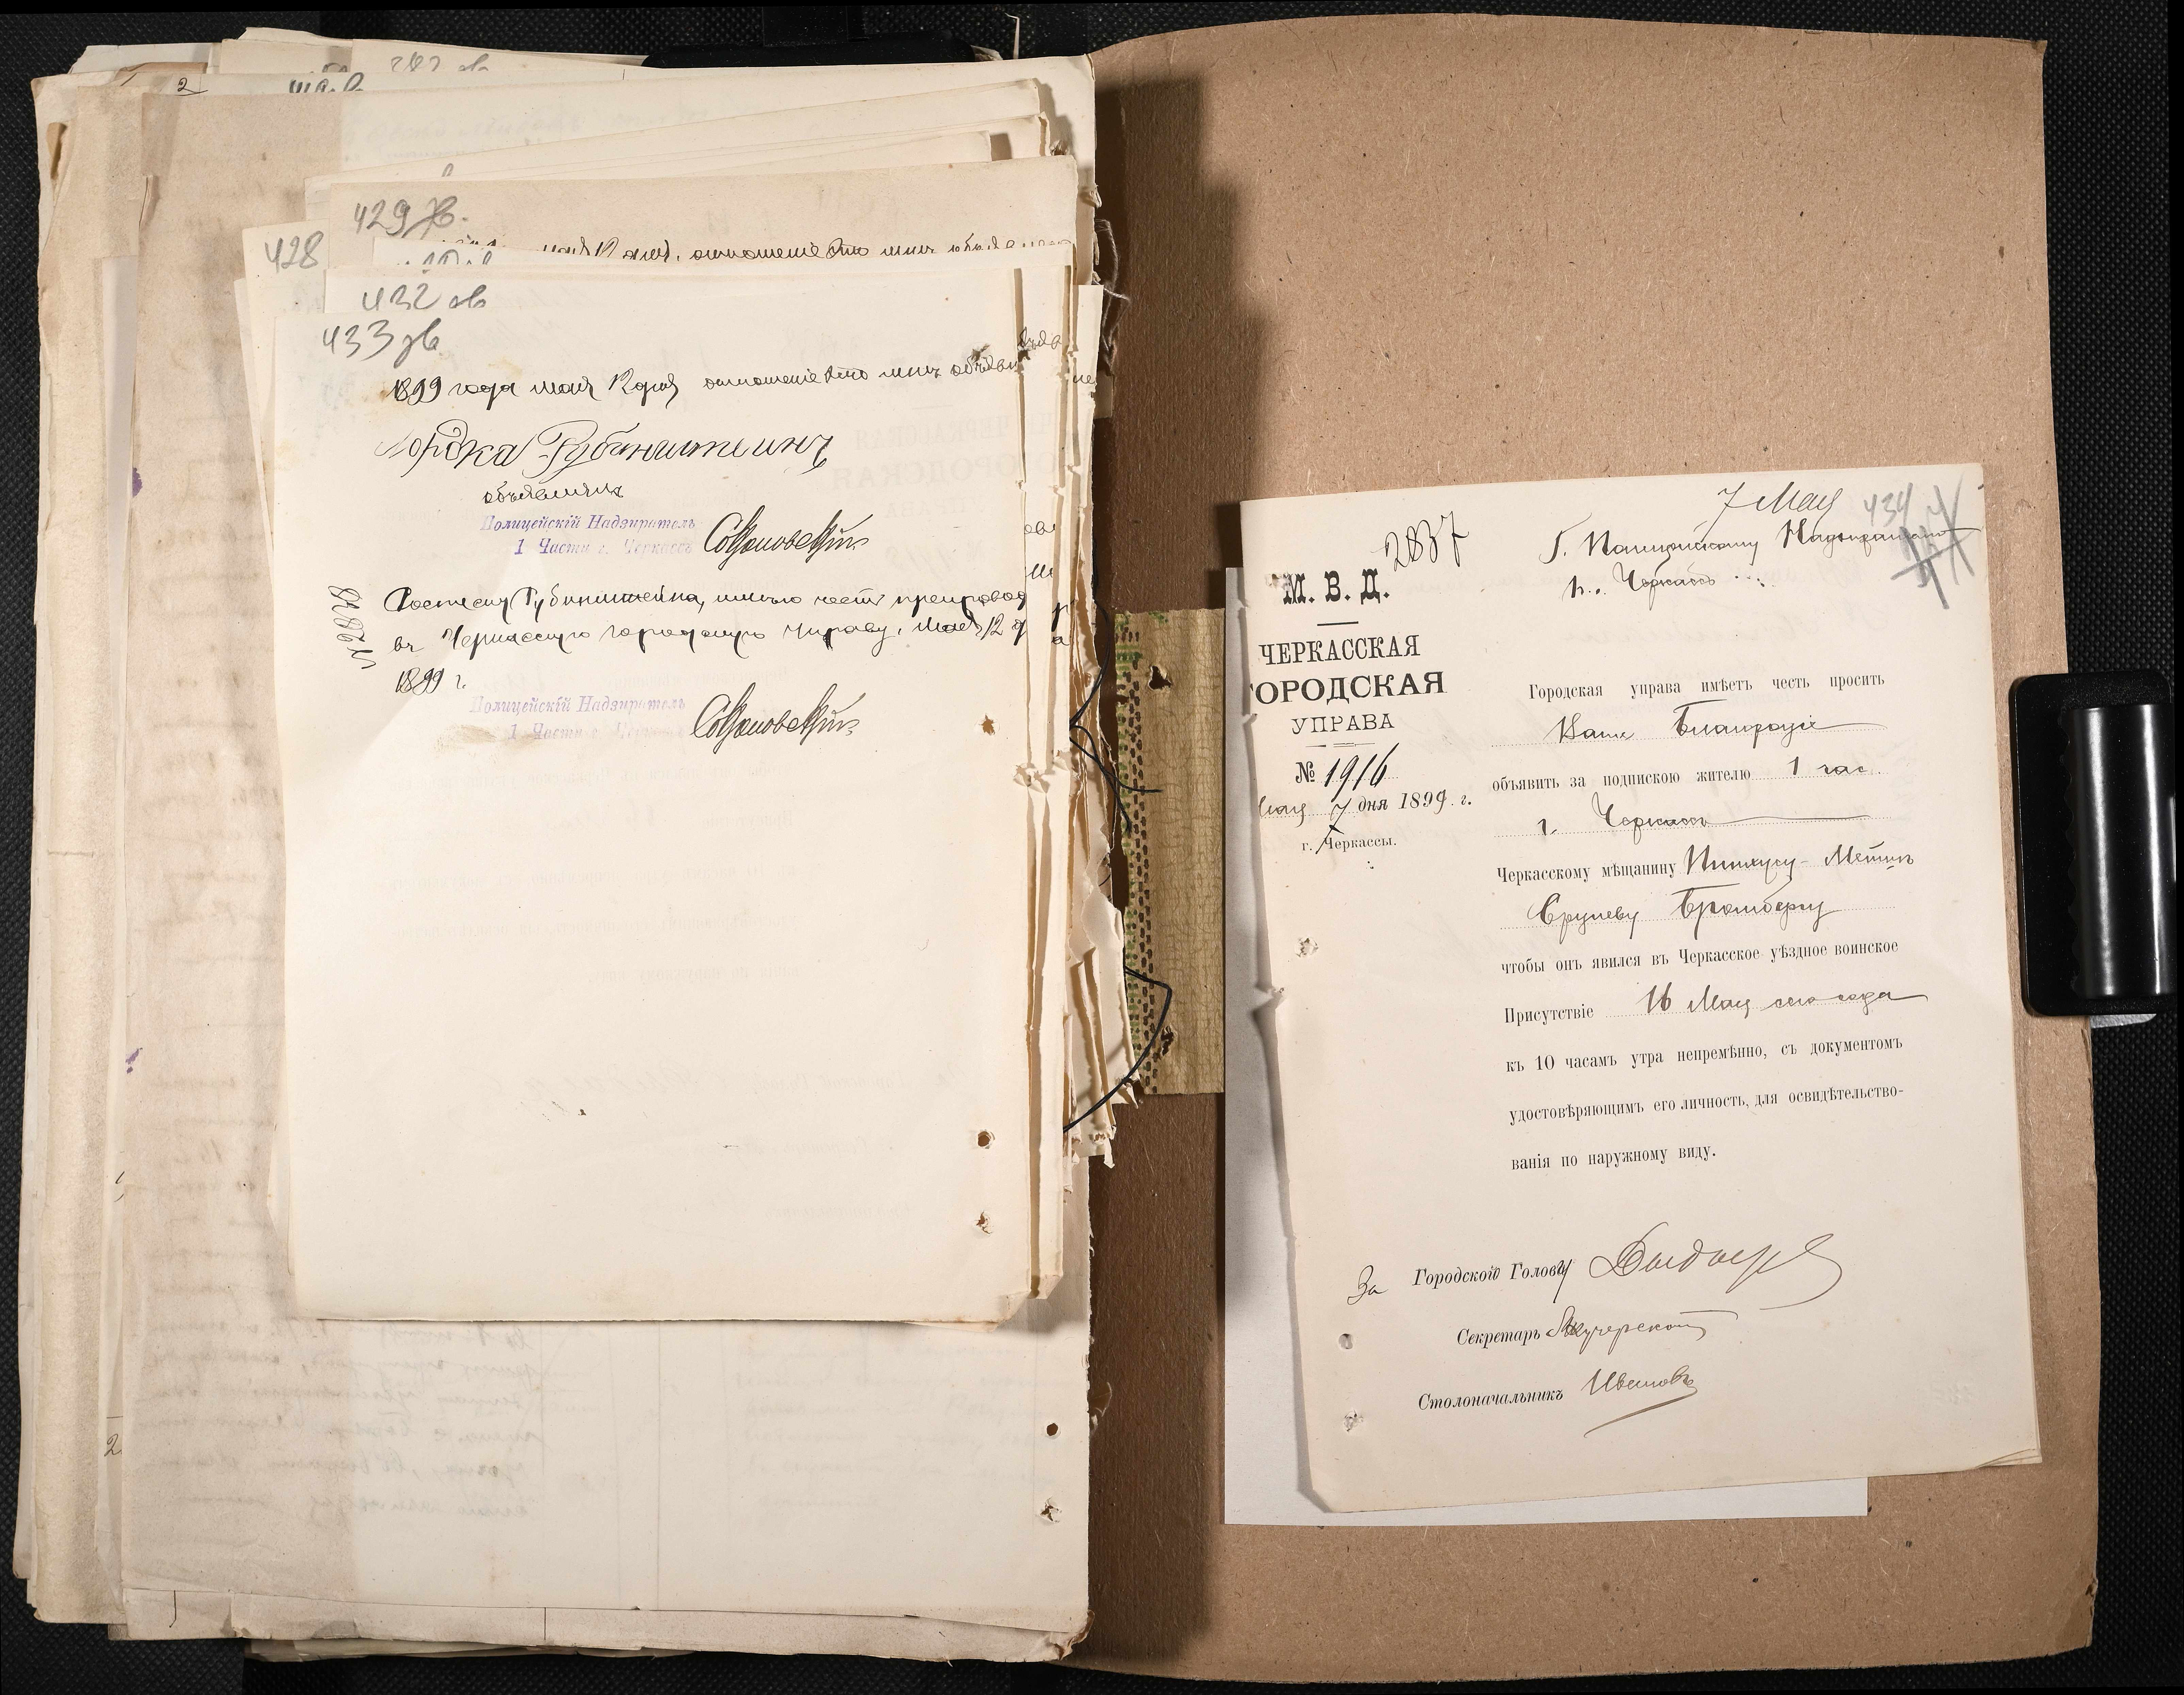 429 зв.
428
432 зв
433 зв
1899 года мая 12 дня отношение это мне объявлено
Иорка Рубинштейнъ
объявилъ
Полицейскій Надзиратель
1 Части г. Черкассъ
Росписку Рубинштейна, имѣю честь препровод
въ Черкасскую городскую управу. Мая 12 д
1899 г.
№2878
Полицейскій Надзиратель
1 Части г.
7 Мая
434
2837
Г. Полицейскому Надзирателю
г. Черкассъ
М. В. Д.
ЧЕРКАССКАЯ
ГОРОДСКАЯ
УПРАВА
№ 1916
Мая 7 дня 1899 г.
г. Черкассы.
Городская управа имѣетъ честь просить
Ваше Благородіе
объявить за подпискою жителю 1 час.
г. Черкассъ
Черкасскому мѣщанину Пинхусу-
Срулеву Бромбергу
чтобы онъ явился въ Черкасское уѣздное воинское
Присутствіе 16 Мая сего года
къ 10 часамъ утра непремѣнно, съ документомъ
удостовѣряющимъ его личность, для освидѣтельство-
ванія по наружному виду.
За Городского Голову
Секретарь
Столоначальникъ Ивановъ